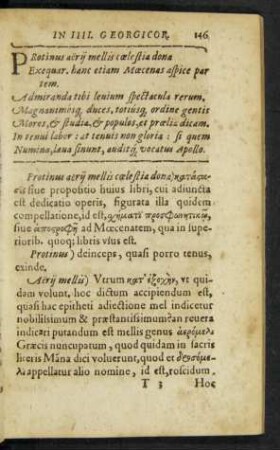 IN IIII. GEORGICOR. 146.
PRotinus aerij mellis cœlestia dona
Exequar. hanc etiam Mœcenas aspice par
tem.
Admiranda tibi leuium spectacula rerum,
Magnanimosq; duces, totiusq; ordine gentis
Mores, & studia, & populos, et prælia dicam.
In tenui labor: at tenuis non gloria: si quem
Numina læua sinunt, auditq; vocatus Apollo.
Protinus aerij mellis cœlestia dona)
siue propositio huius libri, cui adiuncta
est dedicatio operis, figurata illa quidem
compellatione, id est, σχήματι προσφωνητικῷ,
siue ἀποστροφῇ ad Mœcenatem, qua in supe-
riorib. quoq; libris vsus est.
Protinus) deinceps, quasi porro tenus,
exinde.
Aerij mellis) Vtrum κατ' ἐξοχὴν, vt qui-
dam volunt, hoc dictum accipiendum est,
quasi hac epitheti adiectione mel indicetur
nobilissimum & præstantissimum: an reuera
indicari putandum est mellis genus ἀερόμελι
Græcis nuncupatum, quod quidam in sacris
literis Māna dici voluerunt, quod et δροσόμε-
λι appellatur alio nomine, id est, roscidum.
T 3 Hoc